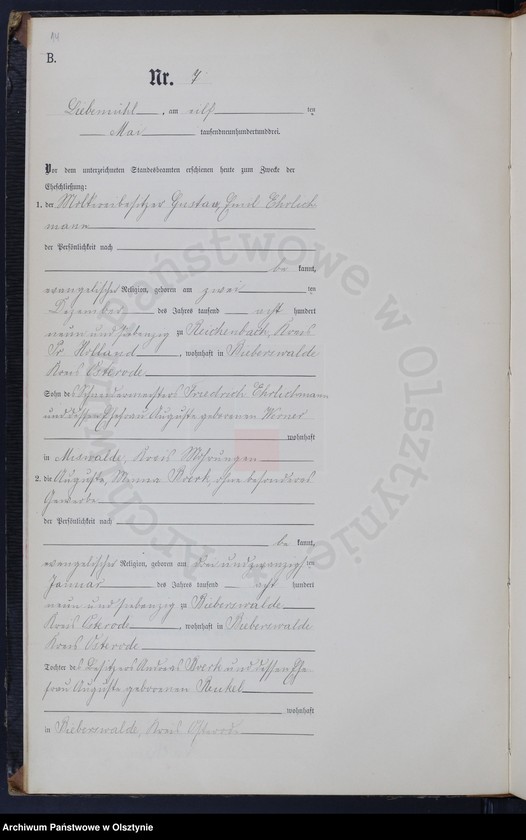 14
B.
Nr. 7
Liebemühl, am elf ten
Mai tausendneunhundertunddrei.
Vor dem unterzeichneten Standesbeamten erschienen heute zum Zwecke der
Eheschließung:
1. der Molkereibesitzer Gustav, Emil Ehrlich
mann
der Persönlichkeit nach
be kannt,
evangelischer Religion, geboren am zwei ten
Dezember des Jahres tausend acht hundert
neun und siebenzig zu Reichenbach, Kreis
Pr. Holland, wohnhaft in Bieberswalde
Kreis Osterode
Sohn des Schneidermeisters Friedrich Ehrlichmann
und dessen Ehefrau Auguste geborenen Werner
wohnhaft
in Miswalde, Kreis Mohrungen
2. die Auguste, Minna Bork, ohne besonderes
Gewerbe
der Persönlichkeit nach
be kannt,
evangelischer Religion, geboren am drei und zwanzigs ten
Januar des Jahres tausend acht hundert
neun und siebenzig zu Bieberswalde
Kreis Osterode, wohnhaft in Bieberswalde
Kreis Osterode
Tochter des Besitzers Andreas Bork und dessen Ehe
frau Auguste geborenen Renkel
wohnhaft
in Bieberswalde, Kreis Osterode
Archiwum Państwowe w Olsztynie
Archiwum Państwowe w Olsztynie